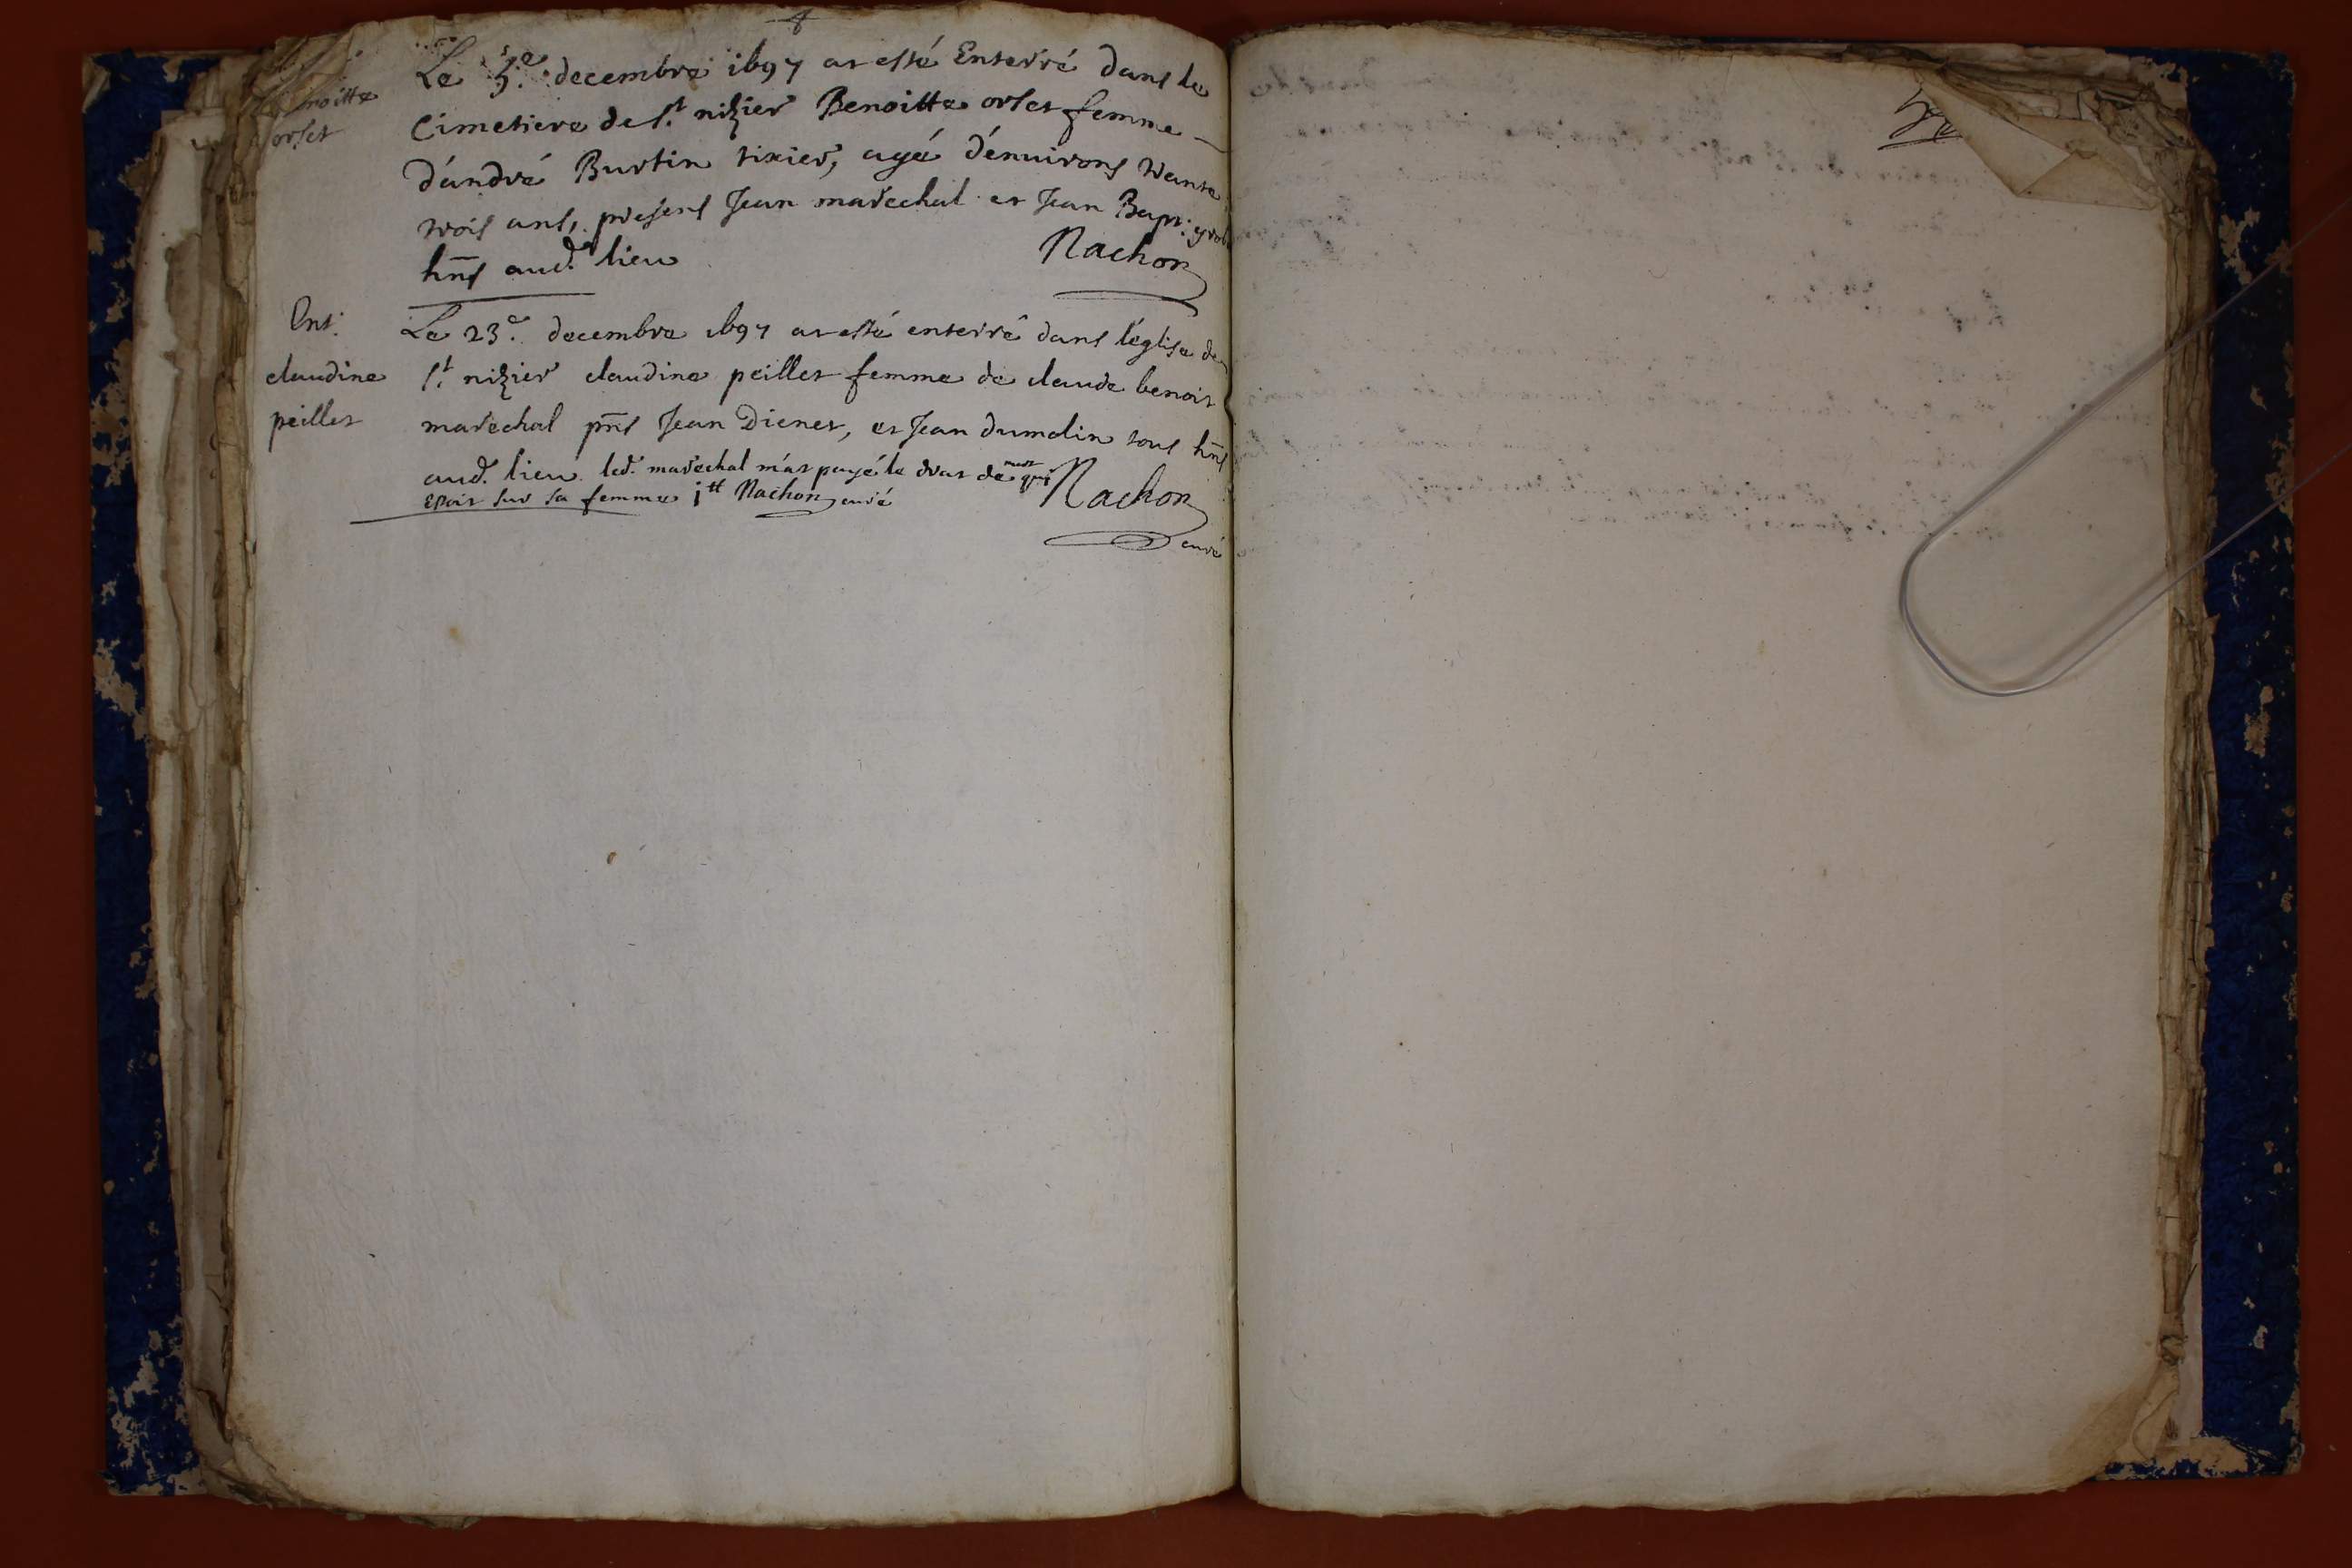 Benoitte
orset
Le 5.e decembre 1697 at esté Enterré dans le
Cimetiere de St. nizier Benoitte orset femme
d'andré Burtin tixier, agé d'enuirons trante
trois ans, presens Jean marechal et Jean Bapt:
hñs aud. lieu
Nachon
Ent:
claudine
peillet
Le 23.e decembre 1697 at esté enterré dans l'église de
St. nizier claudine peillet femme de claude benoit
marechal pñs Jean Dienet, et Jean dumolin tous hñs
aud. lieu led. marechal m'at payé le drat de mort qui
Etoit sur sa femme j tt Nachon curé
Nachon
curé